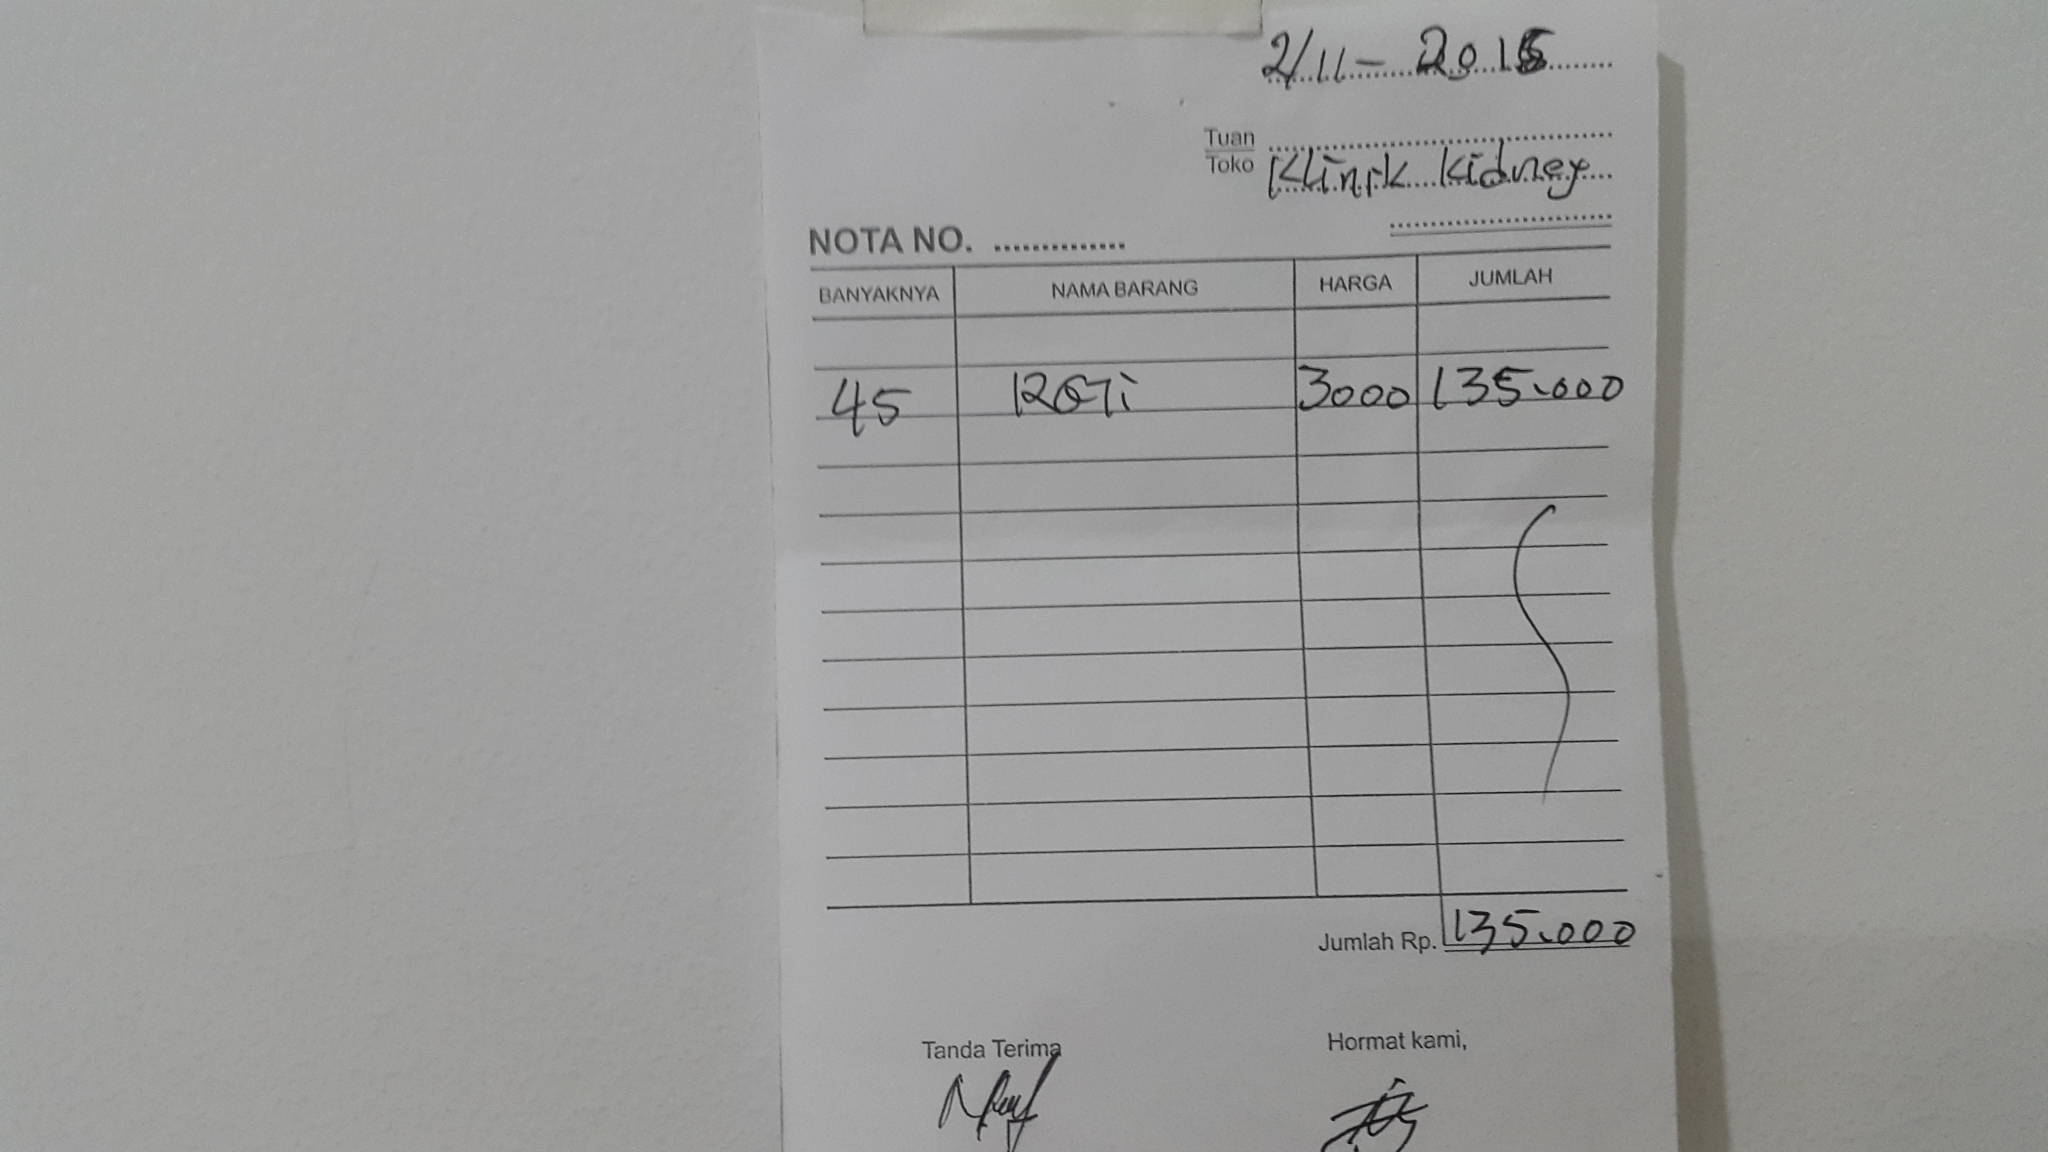 2/11 - 2015
Tuan
Toko Klinik Kidney
NOTA NO. ..............
BANYAKNYA NAMA BARANG HARGA JUMLAH
45 ROTi 3000 135.000
Jumlah Rp. 135.000
Tanda Terima Hormat kami,